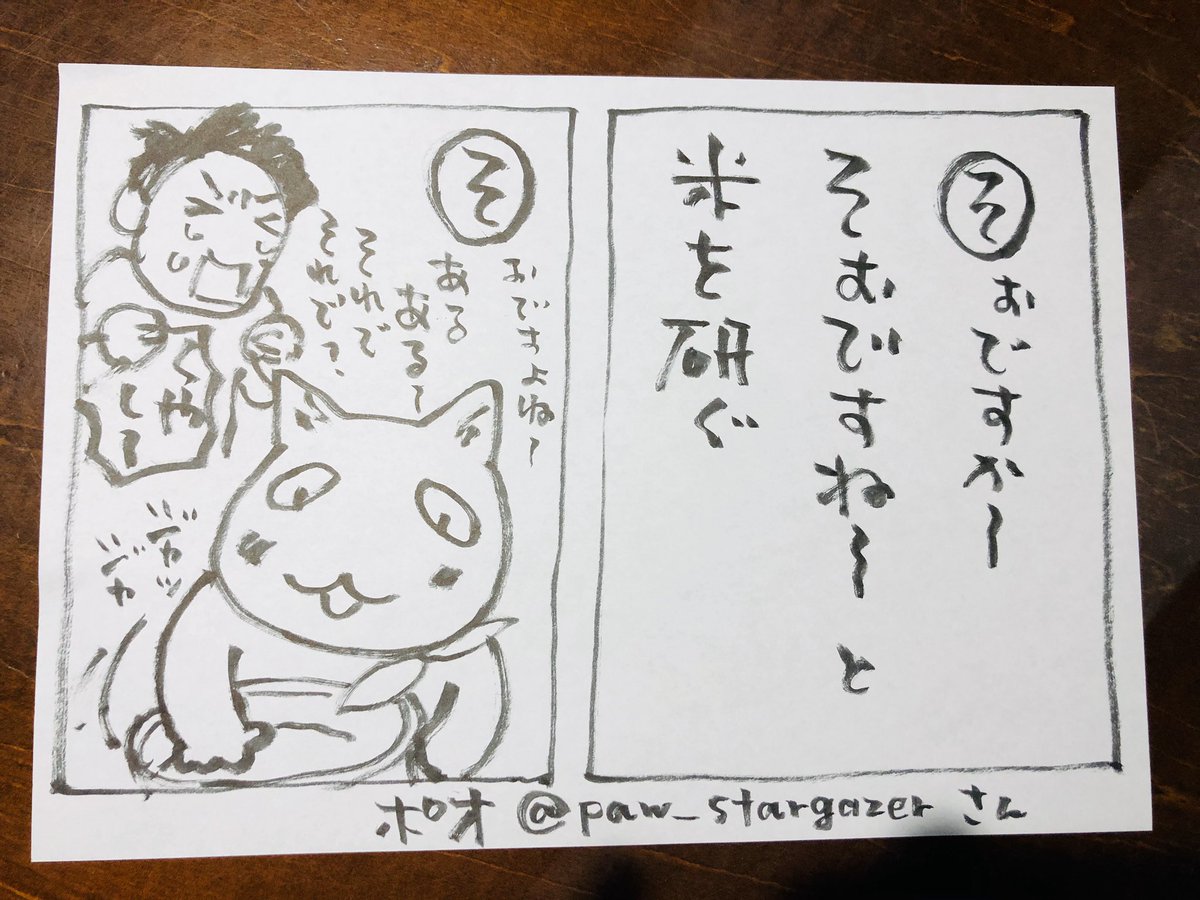 そ
おですか〜
そむですね〜 と
米を研ぐ
そ
おですよね〜
ある
ある〜
それで
それで?
くや
して
ジャカッ
ジャカ
ポオ @paw_stargazer さん